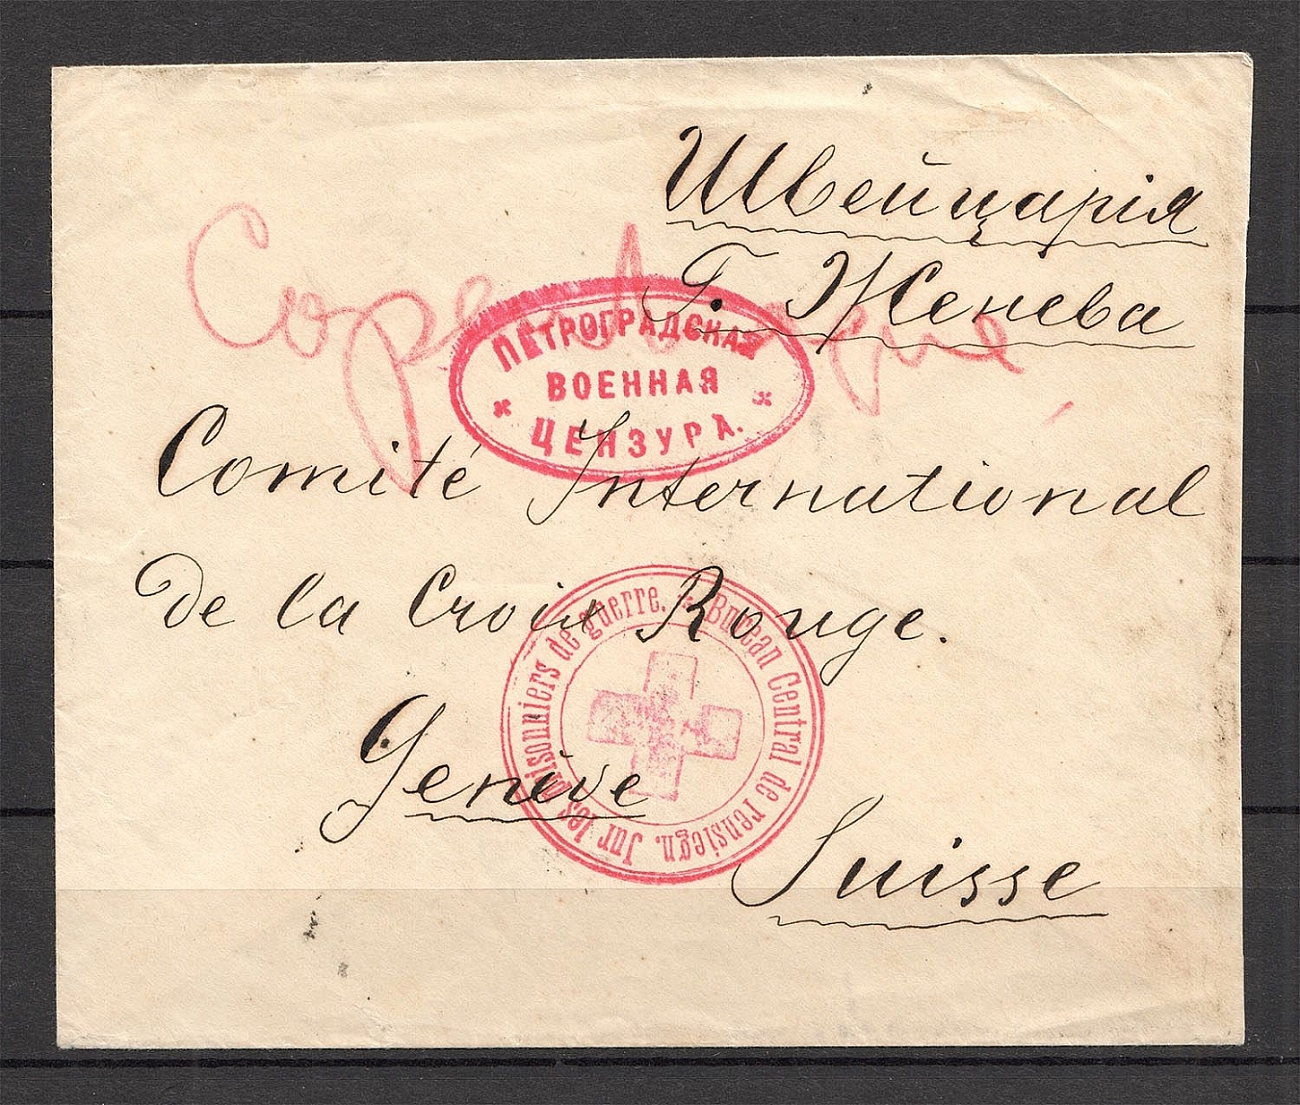 Швейцарія
Г. Женева
Copenhague
ПЕТРОГРАДСКАЯ
ВОЕННАЯ
ЦЕНЗУРА.
Comité International
de la Croix Rouge.
Bureau Central de rensiegn. sur les prisonniers de guerre.
Genève
Suisse